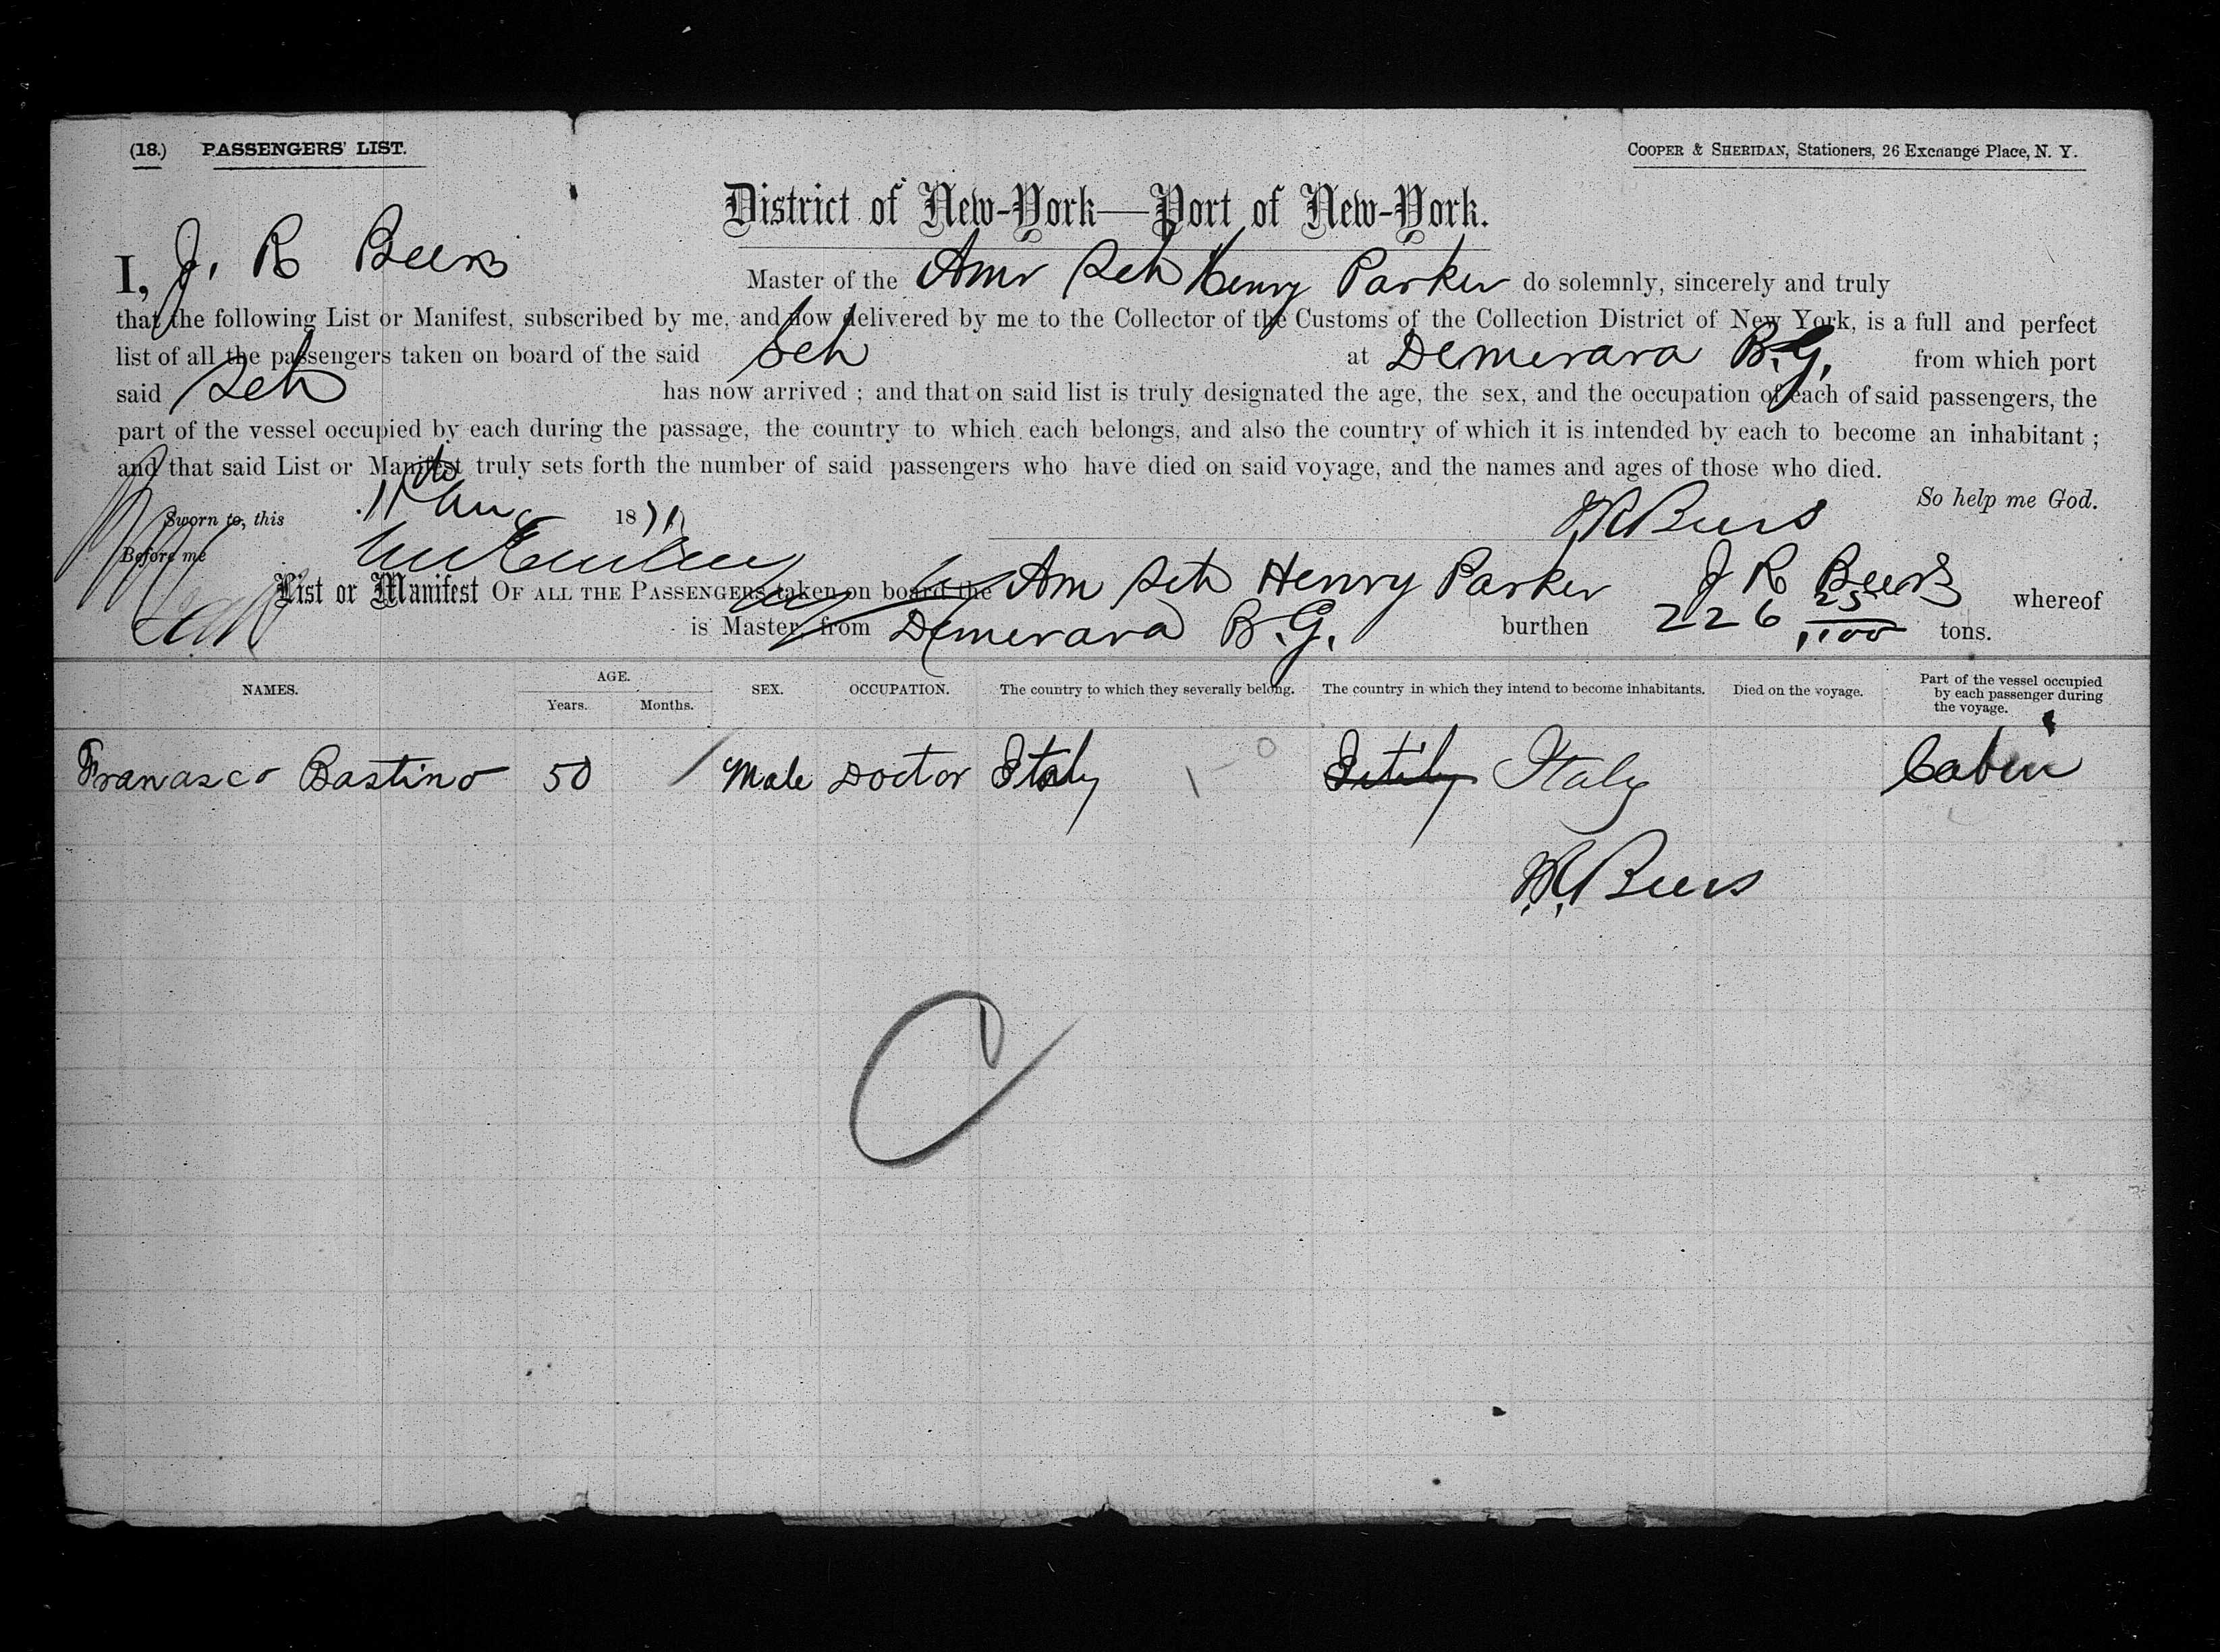 (18.) PASSENGERS' LIST.
COOPER & SHERIDAN, Stationers, 26 Exchange Place, N. Y.
District of New-York—Port of New-York.
I, J. R Beers Master of the Amr Sch Henry Parker do solemnly, sincerely and truly
that the following List or Manifest, subscribed by me, and now delivered by me to the Collector of the Customs of the Collection District of New York, is a full and perfect
list of all the passengers taken on board of the said Sch at Demerara B.G. from which port
said Sch has now arrived ; and that on said list is truly designated the age, the sex, and the occupation of each of said passengers, the
part of the vessel occupied by each during the passage, the country to which each belongs, and also the country of which it is intended by each to become an inhabitant ;
and that said List or Manifest truly sets forth the number of said passengers who have died on said voyage, and the names and ages of those who died.
So help me God.
Sworn to, this 11th Aug 1871 J R Beers
Before me
List or Manifest OF ALL THE PASSENGERS taken on board the Am Sch Henry Parker J R Beers whereof
is Master, from Demerara B.G. burthen 226 25/100 tons.
NAMES. AGE. SEX. OCCUPATION. The country to which they severally belong. The country in which they intend to become inhabitants. Died on the voyage. Part of the vessel occupied by each passenger during the voyage.
Years. Months.
Franasco Bastino 50 / Male Doctor Italy 1-0 Italy Cabin
J.R. Beers
C